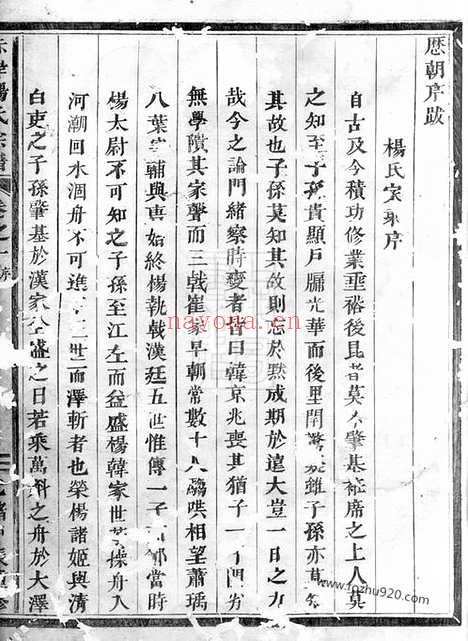 歷朝序跋
楊氏家乘序
自古及今積功修業垂裕後昆者莫不肇基袵席之上人莫
之知至子孫貴顯戶牖光華而後里閈驚羨雖子孫亦莫知
其故也子孫莫知其故則於黙成期於遠大豈一日之力
哉今之論門緒察時變者皆曰韓京兆喪其猶子一門
無學隤其家聲而三戟崔家早朝常數十人騶哄相望蕭瑀
八葉宰輔與唐始終楊執戟漢廷五世惟傳一子當時
楊太尉不可知之子孫至江左而益盛楊韓家世若操舟入
河潮回水涸舟不可進二世而澤斬者也榮楊諸姬與清
白吏之子孫肇基於漢家全盛之日若乘萬斛之舟於大澤
楊氏宗譜 卷之一 序
nayona.cn
f.ozhu920.com